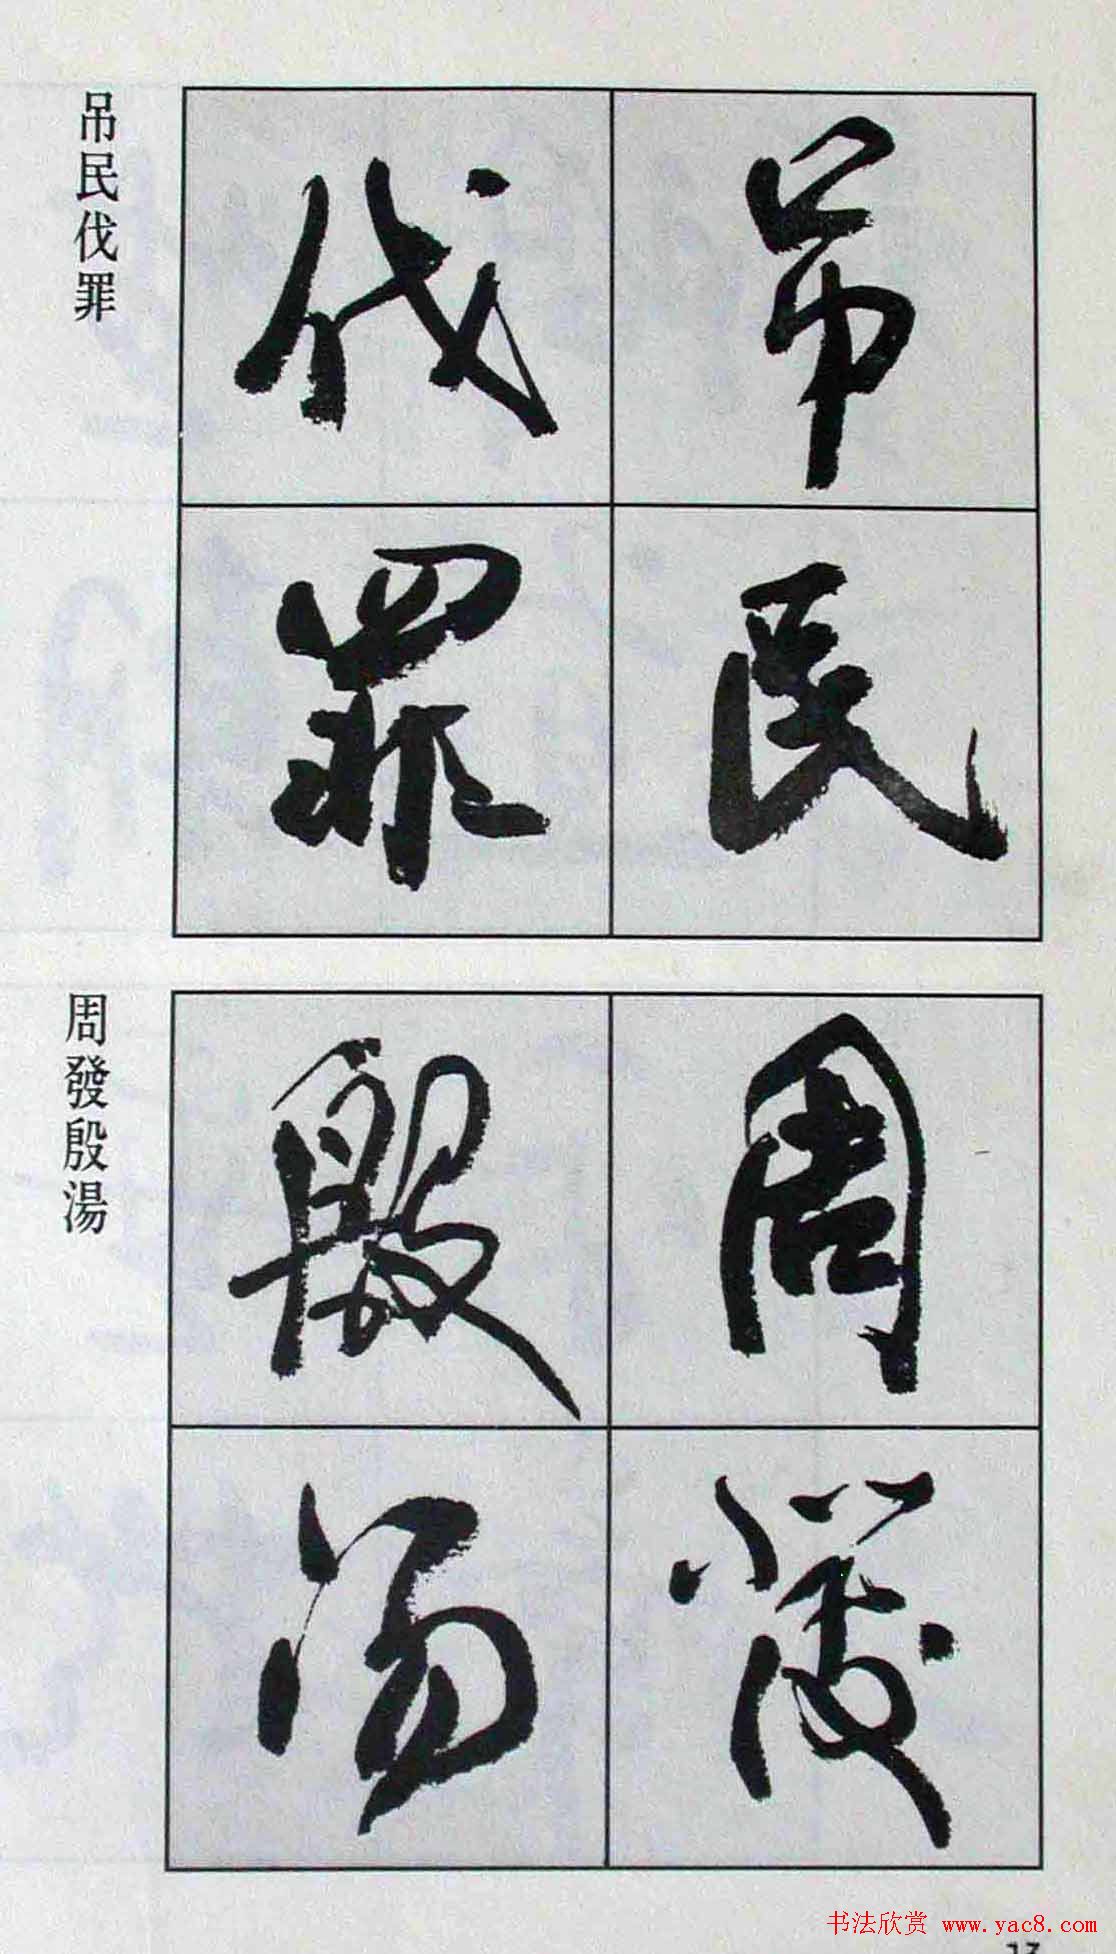 吊民
伐罪
吊民伐罪
周發
殷湯
周發殷湯
书法欣赏 www.yac8.com